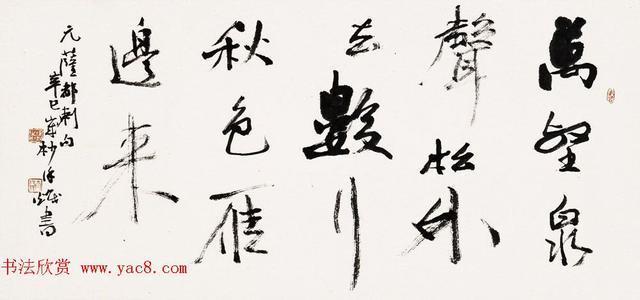 萬壑泉
聲松外
去數行
秋色雁
邊來
元薩都剌句
辛巳歲杪書
书法欣赏 www.yac8.com